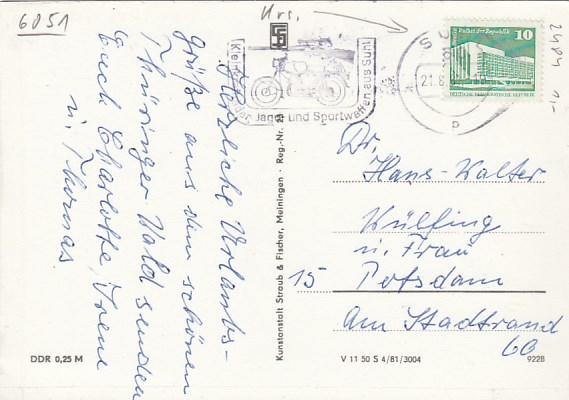 6051
Urs.
2484
1,-
Herzliche Urlaubs-
grüße aus dem schönen
Thüringer Wald senden
Euch Charlotte, Irene
u. Thomas
DDR 0,25 M
Kunstanstalt Straub & Fischer, Meiningen · Reg.-Nr.
Kleinkrafträder, Jagd- und Sportwaffen aus Suhl
SU
21.8.
p
Palast der Republik
10
DEUTSCHE DEMOKRATISCHE REPUBLIK
Dr.
Hans-Walter
Wülfing
u. Frau
15 Potsdam
Am Stadtrand
60
V 11 50 S 4/81/3004
9228